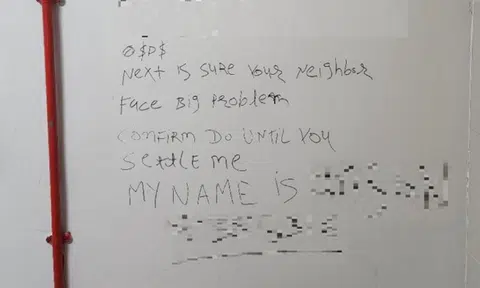 O$P$
NEXT IS SURE YOUR NEIGHBAR
FACE BIG PROBLEM
CONFIRM DO UNTIL YOU
SETTLE ME
MY NAME IS